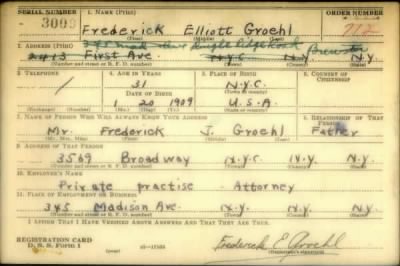 SERIAL NUMBER 1. NAME (Print) ORDER NUMBER
3009 Frederick Elliott Groehl 712
2. ADDRESS (Print)
Brewster
2413 First Ave. N.Y.C. N.Y. N.Y.
(Number and street or R. F. D. number) (Town) (County) (State)
3. TELEPHONE 4. AGE IN YEARS 5. PLACE OF BIRTH 6. COUNTRY OF CITIZENSHIP
31 N.Y.C.
DATE OF BIRTH (Town or county)
1 20 1909 U.S.A
(Mo.) (Day) (Yr.) (State or country)
7. NAME OF PERSON WHO WILL ALWAYS KNOW YOUR ADDRESS 8. RELATIONSHIP OF THAT PERSON
Mr. Frederick J. Groehl Father
(Mr., Mrs., Miss) (First) (Middle) (Last)
9. ADDRESS OF THAT PERSON
3569 Broadway N.Y.C. N.Y. N.Y.
(Number and street or R. F. D. number) (Town) (County) (State)
10. EMPLOYER'S NAME
Private practise Attorney
11. PLACE OF EMPLOYMENT OR BUSINESS
345 Madison Ave. N.Y.C. N.Y. N.Y.
(Number and street or R. F. D. number) (Town) (County) (State)
I AFFIRM THAT I HAVE VERIFIED ABOVE ANSWERS AND THAT THEY ARE TRUE.
REGISTRATION CARD
D. S. S. FORM 1 Frederick E. Groehl
(Registrant's signature)